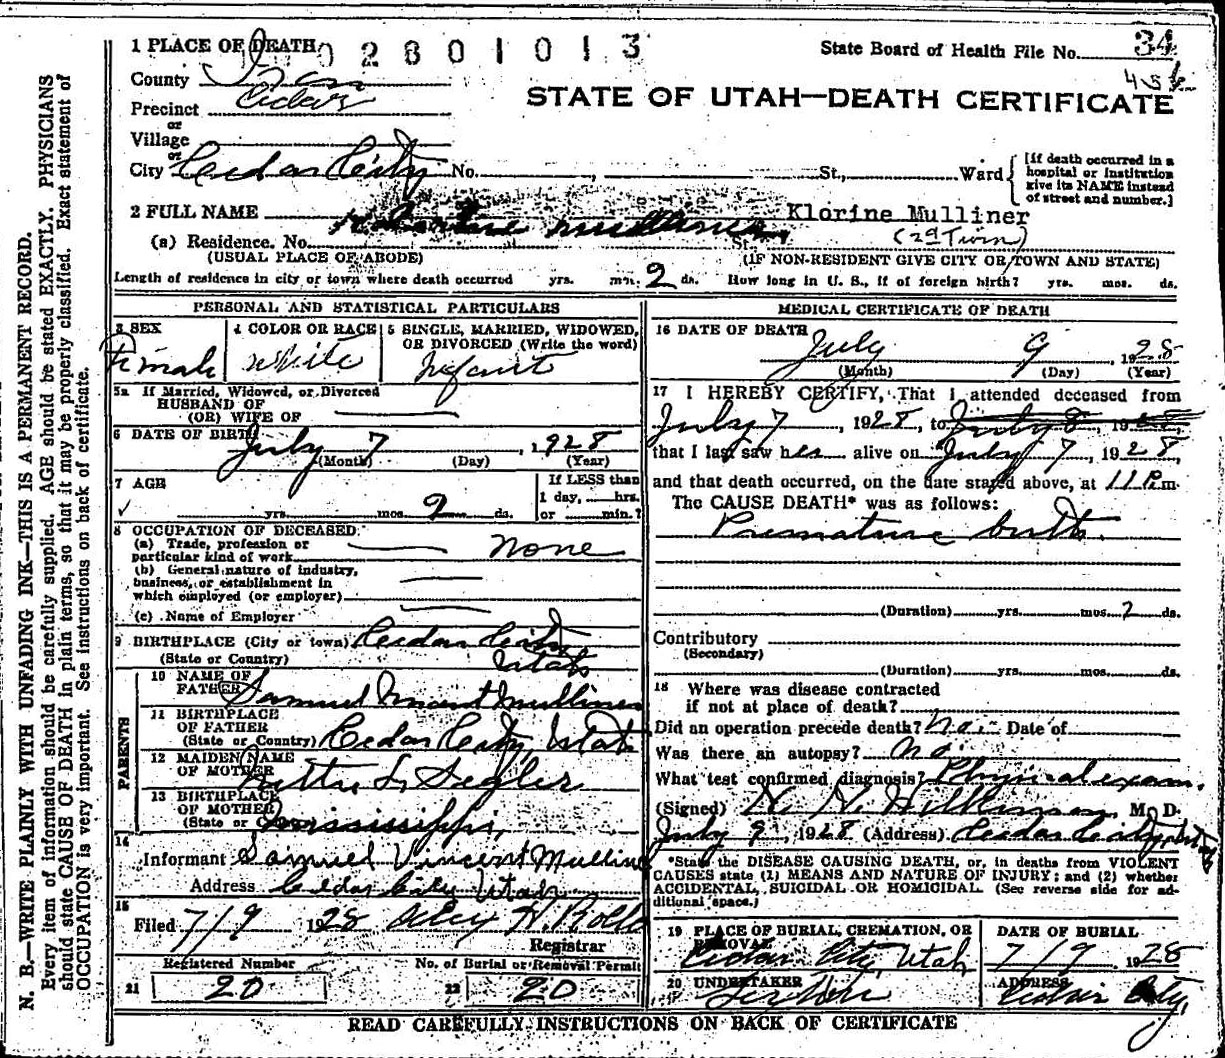 1 PLACE OF DEATH 02801013 State Board of Health File No. 34
County Iron
Precinct Cedar
STATE OF UTAH—DEATH CERTIFICATE
or
Village
or
City Cedar City No. , St., Ward
[If death occurred in a
hospital or institution
give its NAME instead
of street and number.]
2 FULL NAME Klorine Mulliner
(2d Twin)
(a) Residence. No. St.
(USUAL PLACE OF ABODE) (IF NON-RESIDENT GIVE CITY OR TOWN AND STATE)
Length of residence in city or town where death occurred yrs. m. 2 ds. How long in U. S., if of foreign birth? yrs. mos. ds.
PERSONAL AND STATISTICAL PARTICULARS
3 SEX
Female
4 COLOR OR RACE
White
5 SINGLE, MARRIED, WIDOWED,
OR DIVORCED (Write the word)
Infant
5a If Married, Widowed, or Divorced
HUSBAND OF
(OR) WIFE OF
6 DATE OF BIRTH July 7, 1928
(Month) (Day) (Year)
7 AGE yrs. mos. 2 ds.
If LESS than
1 day, hrs.
or min.?
8 OCCUPATION OF DECEASED
(a) Trade, profession or
particular kind of work None
(b) General nature of industry,
business, or establishment in
which employed (or employer)
(c) Name of Employer
9 BIRTHPLACE (City or town) Cedar City
(State or Country) Utah
PARENTS
10 NAME OF
FATHER Samuel Vincent Mulliner
11 BIRTHPLACE
OF FATHER
(State or Country) Cedar City, Utah
12 MAIDEN NAME
OF MOTHER L. Segler
13 BIRTHPLACE
OF MOTHER
(State or Country) Mississippi,
14
Informant Samuel Vincent Mulliner
Address Cedar City Utah
15
Filed 7/9 1928
Registrar
Registered Number
21 20
No. of Burial or Removal Permit
22 20
MEDICAL CERTIFICATE OF DEATH
16 DATE OF DEATH
July 9, 1928
(Month) (Day) (Year)
17 I HEREBY CERTIFY, That I attended deceased from
July 7, 1928, to July 8, 1928,
that I last saw her alive on July 7, 1928,
and that death occurred, on the date stated above, at 11 P.m.
The CAUSE DEATH* was as follows:
Premature birth.
(Duration) yrs. mos. 2 ds.
Contributory
(Secondary)
(Duration) yrs. mos. ds.
18 Where was disease contracted
if not at place of death?
Did an operation precede death? No. Date of
Was there an autopsy? No.
What test confirmed diagnosis? Physical exam.
(Signed) M. D.
July 9, 1928 (Address) Cedar City, Utah
*State the DISEASE CAUSING DEATH, or, in deaths from VIOLENT
CAUSES state (1) MEANS AND NATURE OF INJURY; and (2) whether
ACCIDENTAL, SUICIDAL OR HOMICIDAL. (See reverse side for ad-
ditional space.)
19 PLACE OF BURIAL, CREMATION, OR
REMOVAL
Cedar City, Utah
DATE OF BURIAL
7/9 1928
20 UNDERTAKER
ADDRESS
Cedar City,
READ CAREFULLY INSTRUCTIONS ON BACK OF CERTIFICATE
N. B.—WRITE PLAINLY WITH UNFADING INK—THIS IS A PERMANENT RECORD.
Every item of information should be carefully supplied. AGE should be stated EXACTLY. PHYSICIANS
should state CAUSE OF DEATH in plain terms, so that it may be properly classified. Exact statement of
OCCUPATION is very important. See instructions on back of certificate.